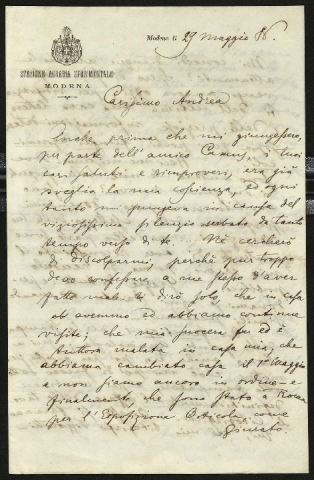 Modena li 29 Maggio 86.
STAZIONE AGRARIA SPERIMENTALE
MODENA
Carissimo Andrea
Anche prima che mi giungessero,
per parte dell'amico, i tuoi
cari saluti e rimproveri, era già
sveglia la mia coscienza, ed ogni
tanto mi pungeva in causa del
silenzio serbato da tanto
tempo verso di te. Nè cercherò
di discolparmi, perchè pur troppo
devo confessare a me stesso d'aver
fatto male. Ti dirò solo, che in casa
ò avemmo ed abbiamo continue
visite; che mia suocera fu ed è
tuttora malata in casa mia; che
abbiamo cambiato casa il 1° Maggio
e non siamo ancora in ordine - e
finalmente, che sono stato a Roma
per l'Esposizione, come
Giurato.